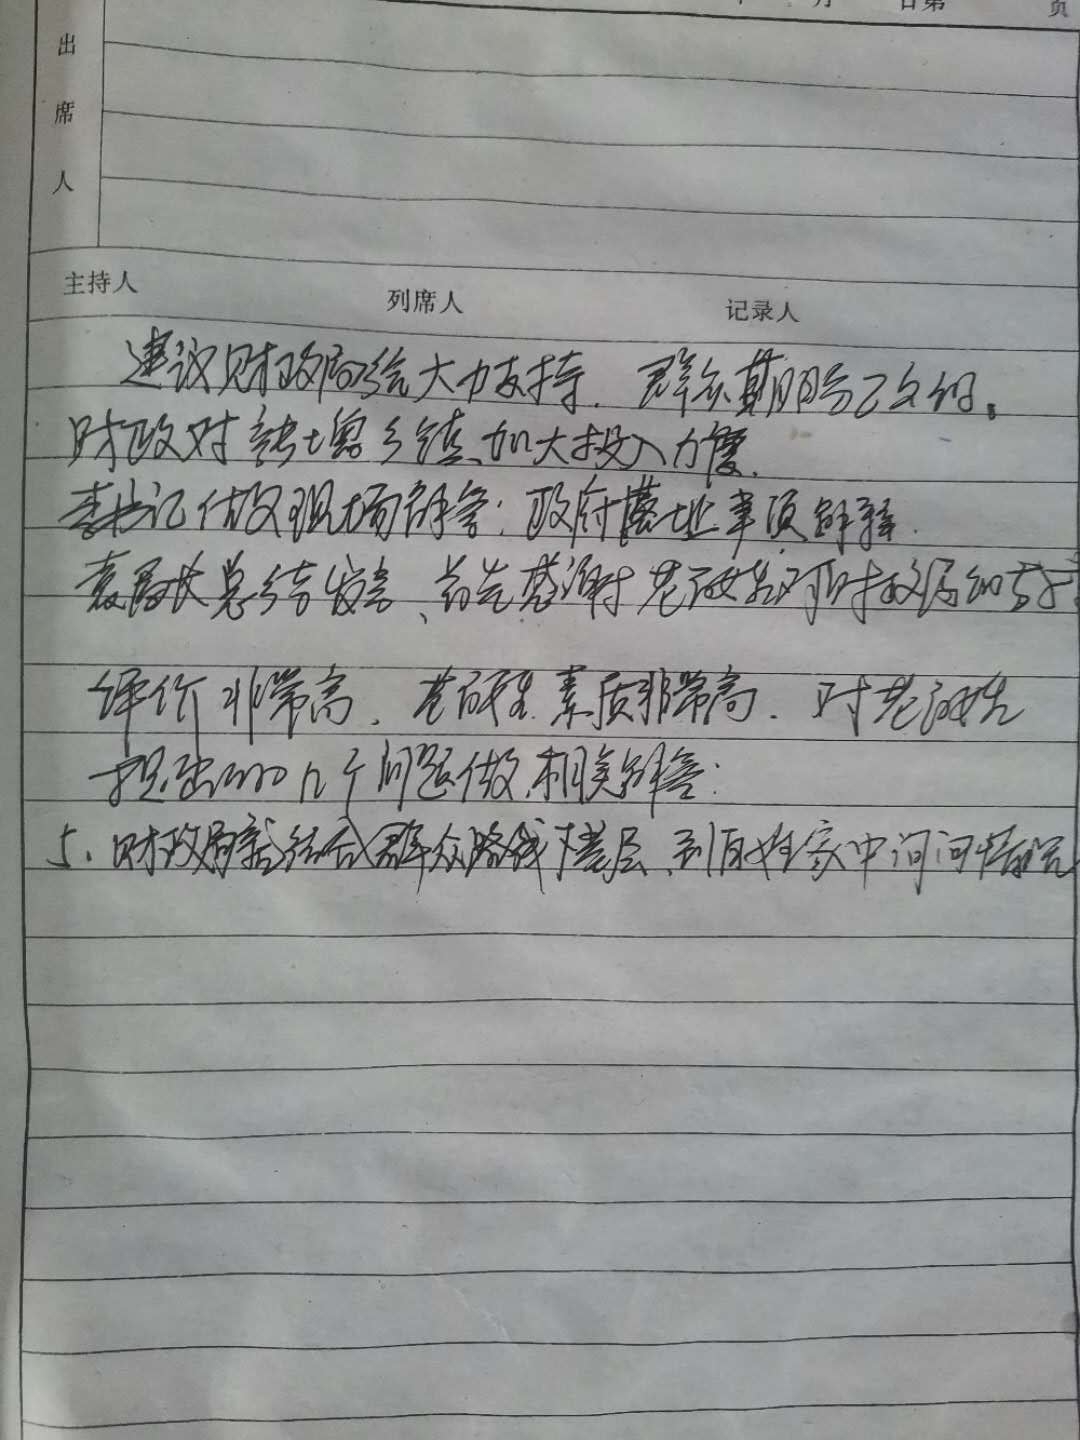 月 日第 页
出席人
主持人 列席人 记录人
建议财政局给大力支持、群众期盼
财政对 乡镇、加大投入力度、
李书记做现场解答:政府 事项解释、
袁局长总结发言、首先感谢老百姓对财政局的
评价非常高、老百姓素质非常高、对老百姓
提出的几个问题做相关解答:
5、财政局就结合群众路线下基层、到百姓家中问问情况